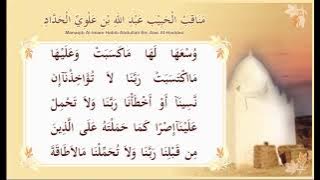 مَنَاقِبُ الْحَبِيْبِ عَبْدِ اللهِ بْنِ عَلْوِيْ الْحَدَّادِ
Manaqib Al-Imam Habib Abdullah Bin Alwi Al-Haddad
وُسْعَهَا لَهَا مَاكَسَبَتْ وَعَلَيْهَا
مَااكْتَسَبَتْ رَبَّنَا لاَ تُؤَاخِذْنَآاِنْ
نَسِيْنَآ اَوْ اَخْطَأْنَا رَبَّنَا وَلاَ تَحْمِلْ
عَلَيْنَآاِصْرًا كَمَا حَمَلْتَهُ عَلَى الَّذِيْنَ
مِنْ قَبْلِنَا رَبَّنَا وَلاَ تُحَمِّلْنَا مَالاَطَاقَةَ